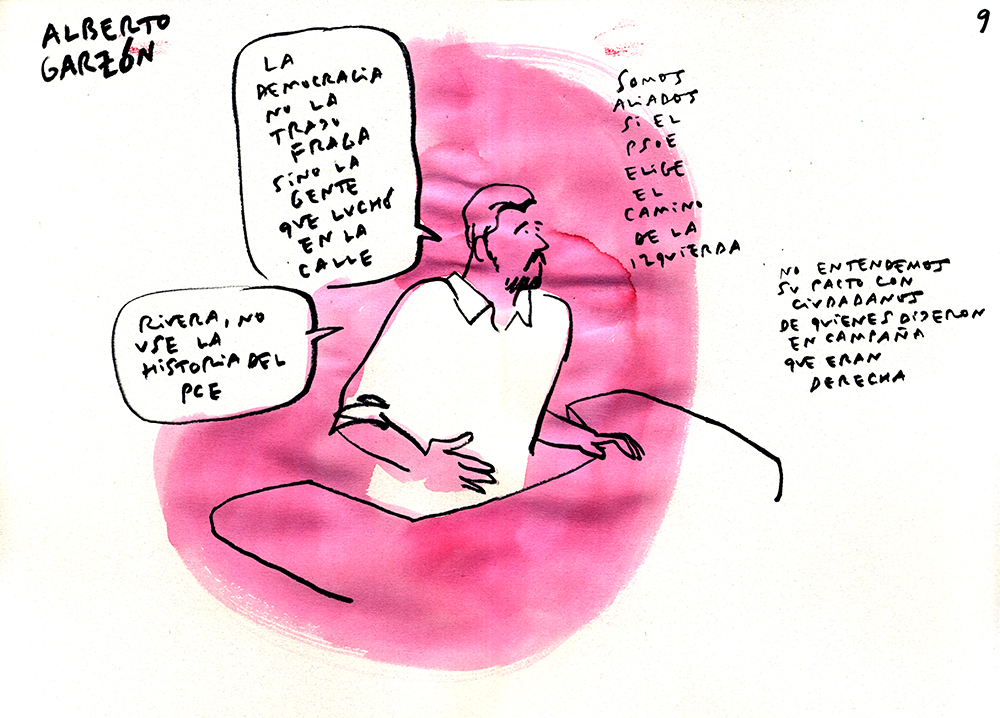 ALBERTO
GARZÓN
9
LA
DEMOCRACIA
NO LA
TRAJO
FRAGA
SINO LA
GENTE
QUE LUCHÓ
EN LA
CALLE
RIVERA, NO
USE LA
HISTORIA DEL
PCE
SOMOS
ALIADOS
SI EL
PSOE
ELIGE
EL
CAMINO
DE LA
IZQUIERDA
NO ENTENDEMOS
SU PACTO CON
CIUDADANOS
DE QUIENES DIJERON
EN CAMPAÑA
QUE ERAN
DERECHA